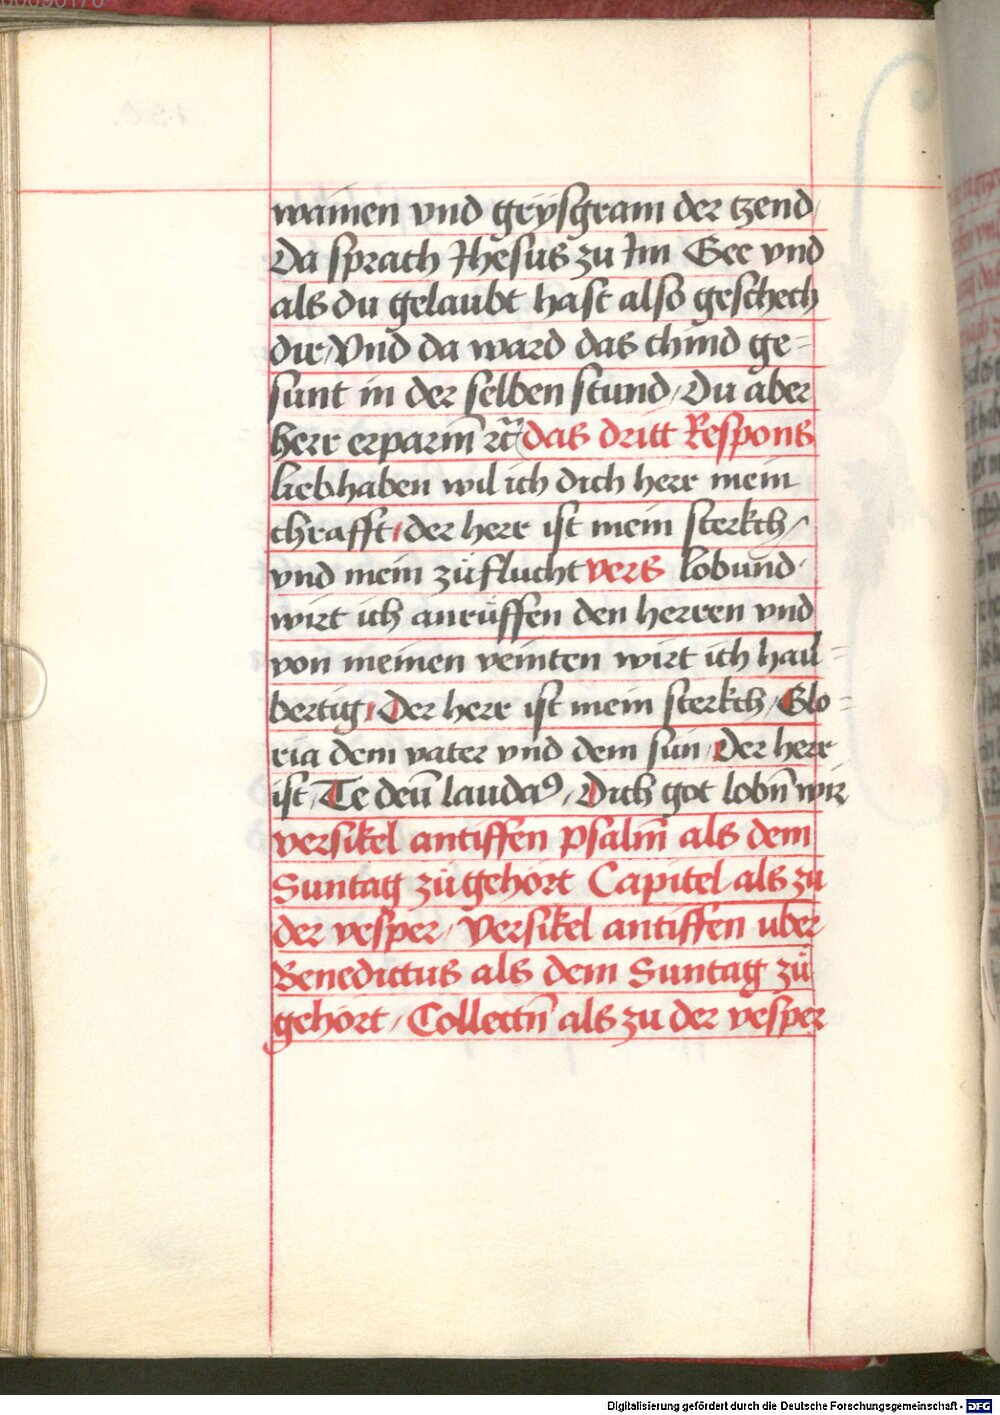 wainen vnd grÿsgram der tzend/
Da sprach Jhesus zu Jm Gee vnd
als du gelaubt hast also geschech
dir/Vnd da ward das chind ge=
sunt in der selben stund/Du aber
herr erparm̄ ꝛc̄ das dritt Respons
Liebhaben wil ich dich herr mein
chrafft/der herr ist mein sterkch/
vnd mein zůflucht vers lobund
wirt ich anrůffen den herren vnd
von meinen veinten wirt ich hail=
bertig/Der herr ist mein sterkch/Glo=
ria dem vater vnd dem sun/Der herr
ist/Te deū laudaꝰ/Dich got lobn̄ wir
versikel antiffen psalm̄ als dem
Suntag zůgehort Capitel als zu
der vesper/Versikel antiffen uber
Benedictus als dem Suntag zů
gehort/Collectn̄ als zu der vesper
Digitalisierung gefördert durch die Deutsche Forschungsgemeinschaft - DFG